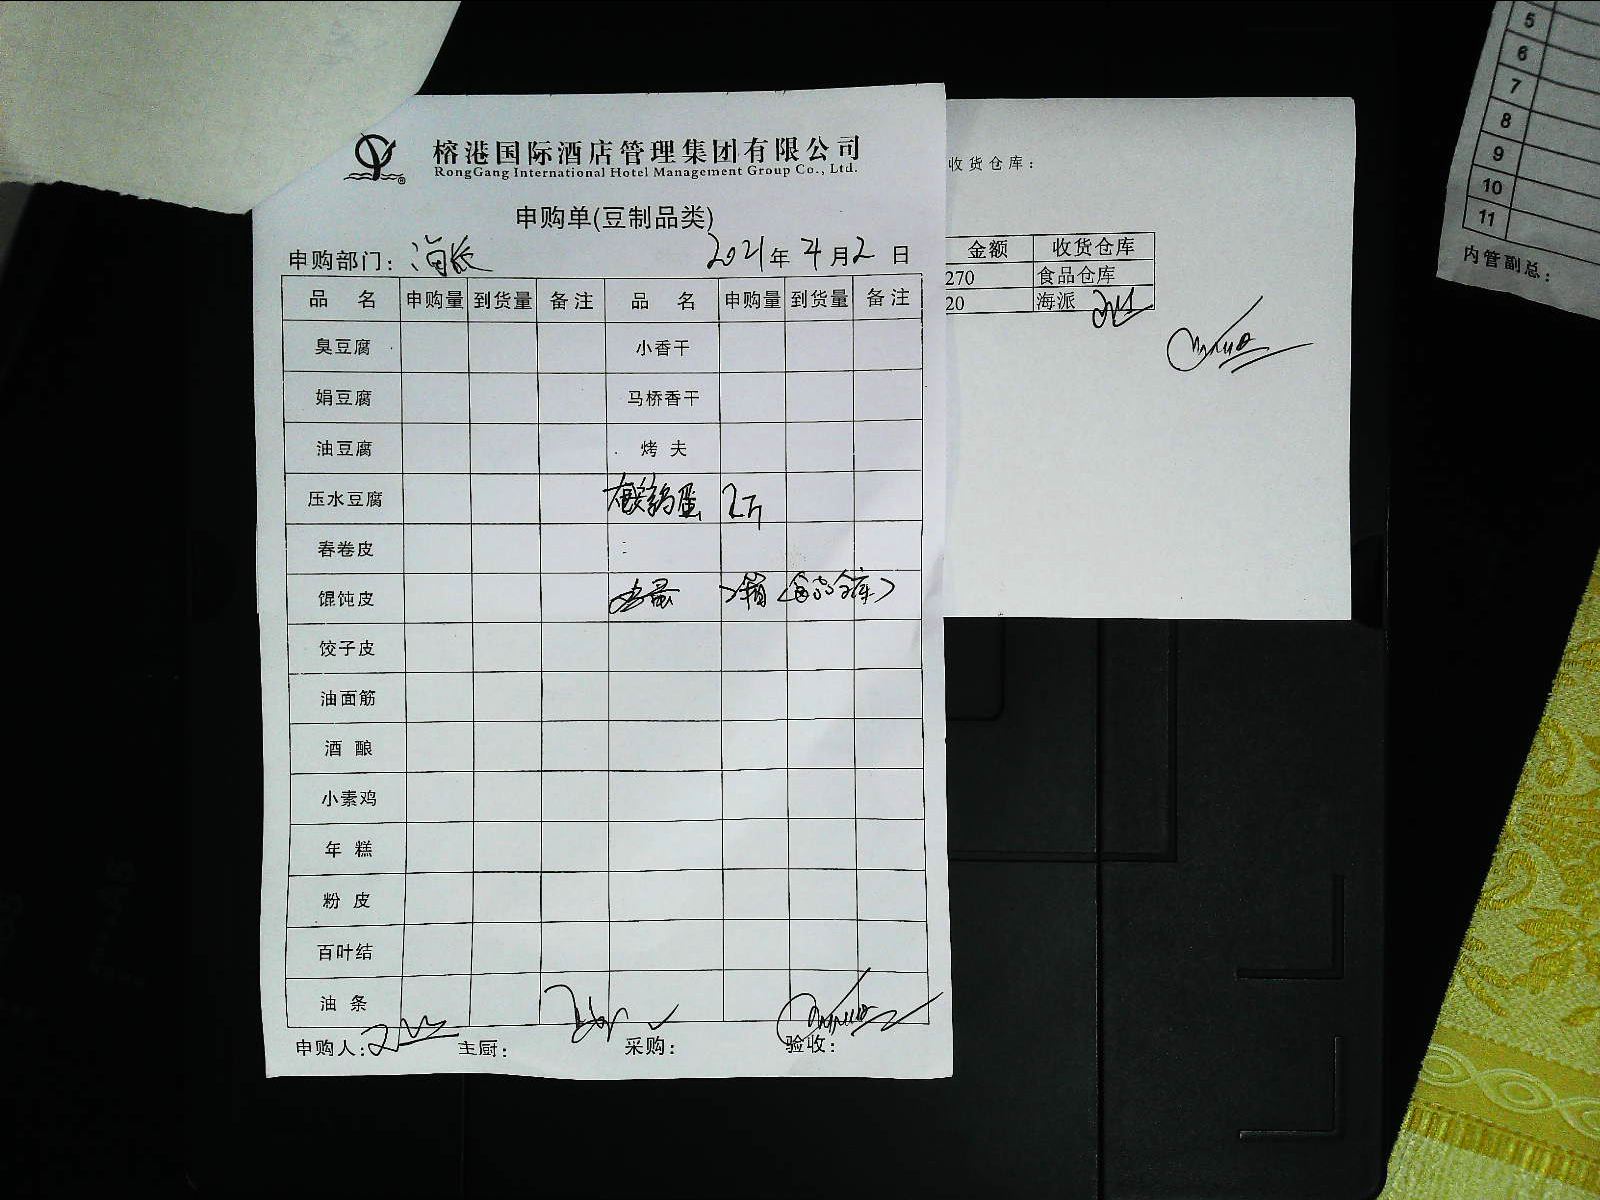 榕港国际酒店管理集团有限公司
RongGang International Hotel Management Group Co., Ltd.
申购单(豆制品类)
申购部门: 海派 2021年4月2日
品 名 申购量 到货量 备注 品 名 申购量 到货量 备注
臭豆腐 小香干
娟豆腐 马桥香干
油豆腐 烤 夫
压水豆腐 鹌鹑蛋 2斤
春卷皮
馄饨皮 鸡蛋 箱(食品仓库)
饺子皮
油面筋
酒 酿
小素鸡
年 糕
粉 皮
百叶结
油 条
申购人: 主厨: 采购: 验收:
收货仓库:
金额 收货仓库
270 食品仓库
20 海派
5
6
7
8
9
10
11
内管副总: